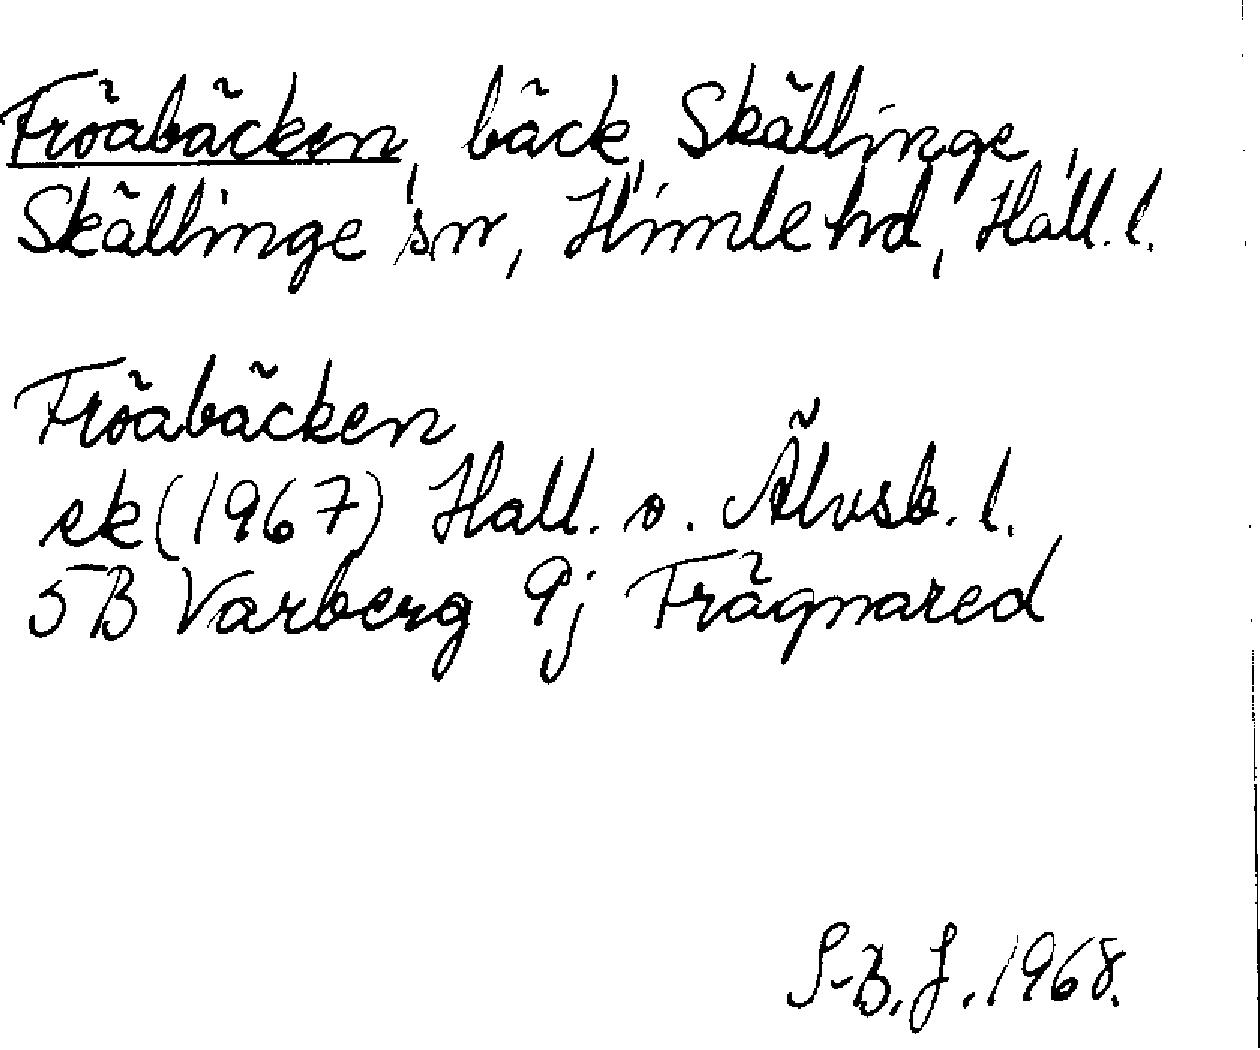 Fröabäcken, bäck, Skällinge,
Skällinge sn, Himle hd, Hall. l.
Fröabäcken
ek (1967) Hall. o. Älvsb. l.
5B Varberg 9j Frägnared
S-B. J. 1968.